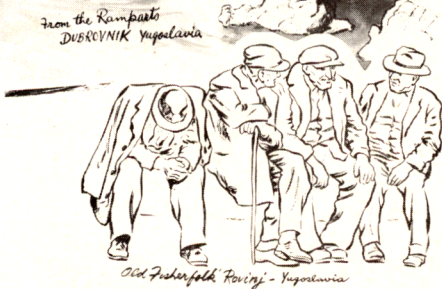 From the Ramparts
DUBROVNIK Yugoslavia
Old Fisherfolk Rovinj - Yugoslavia